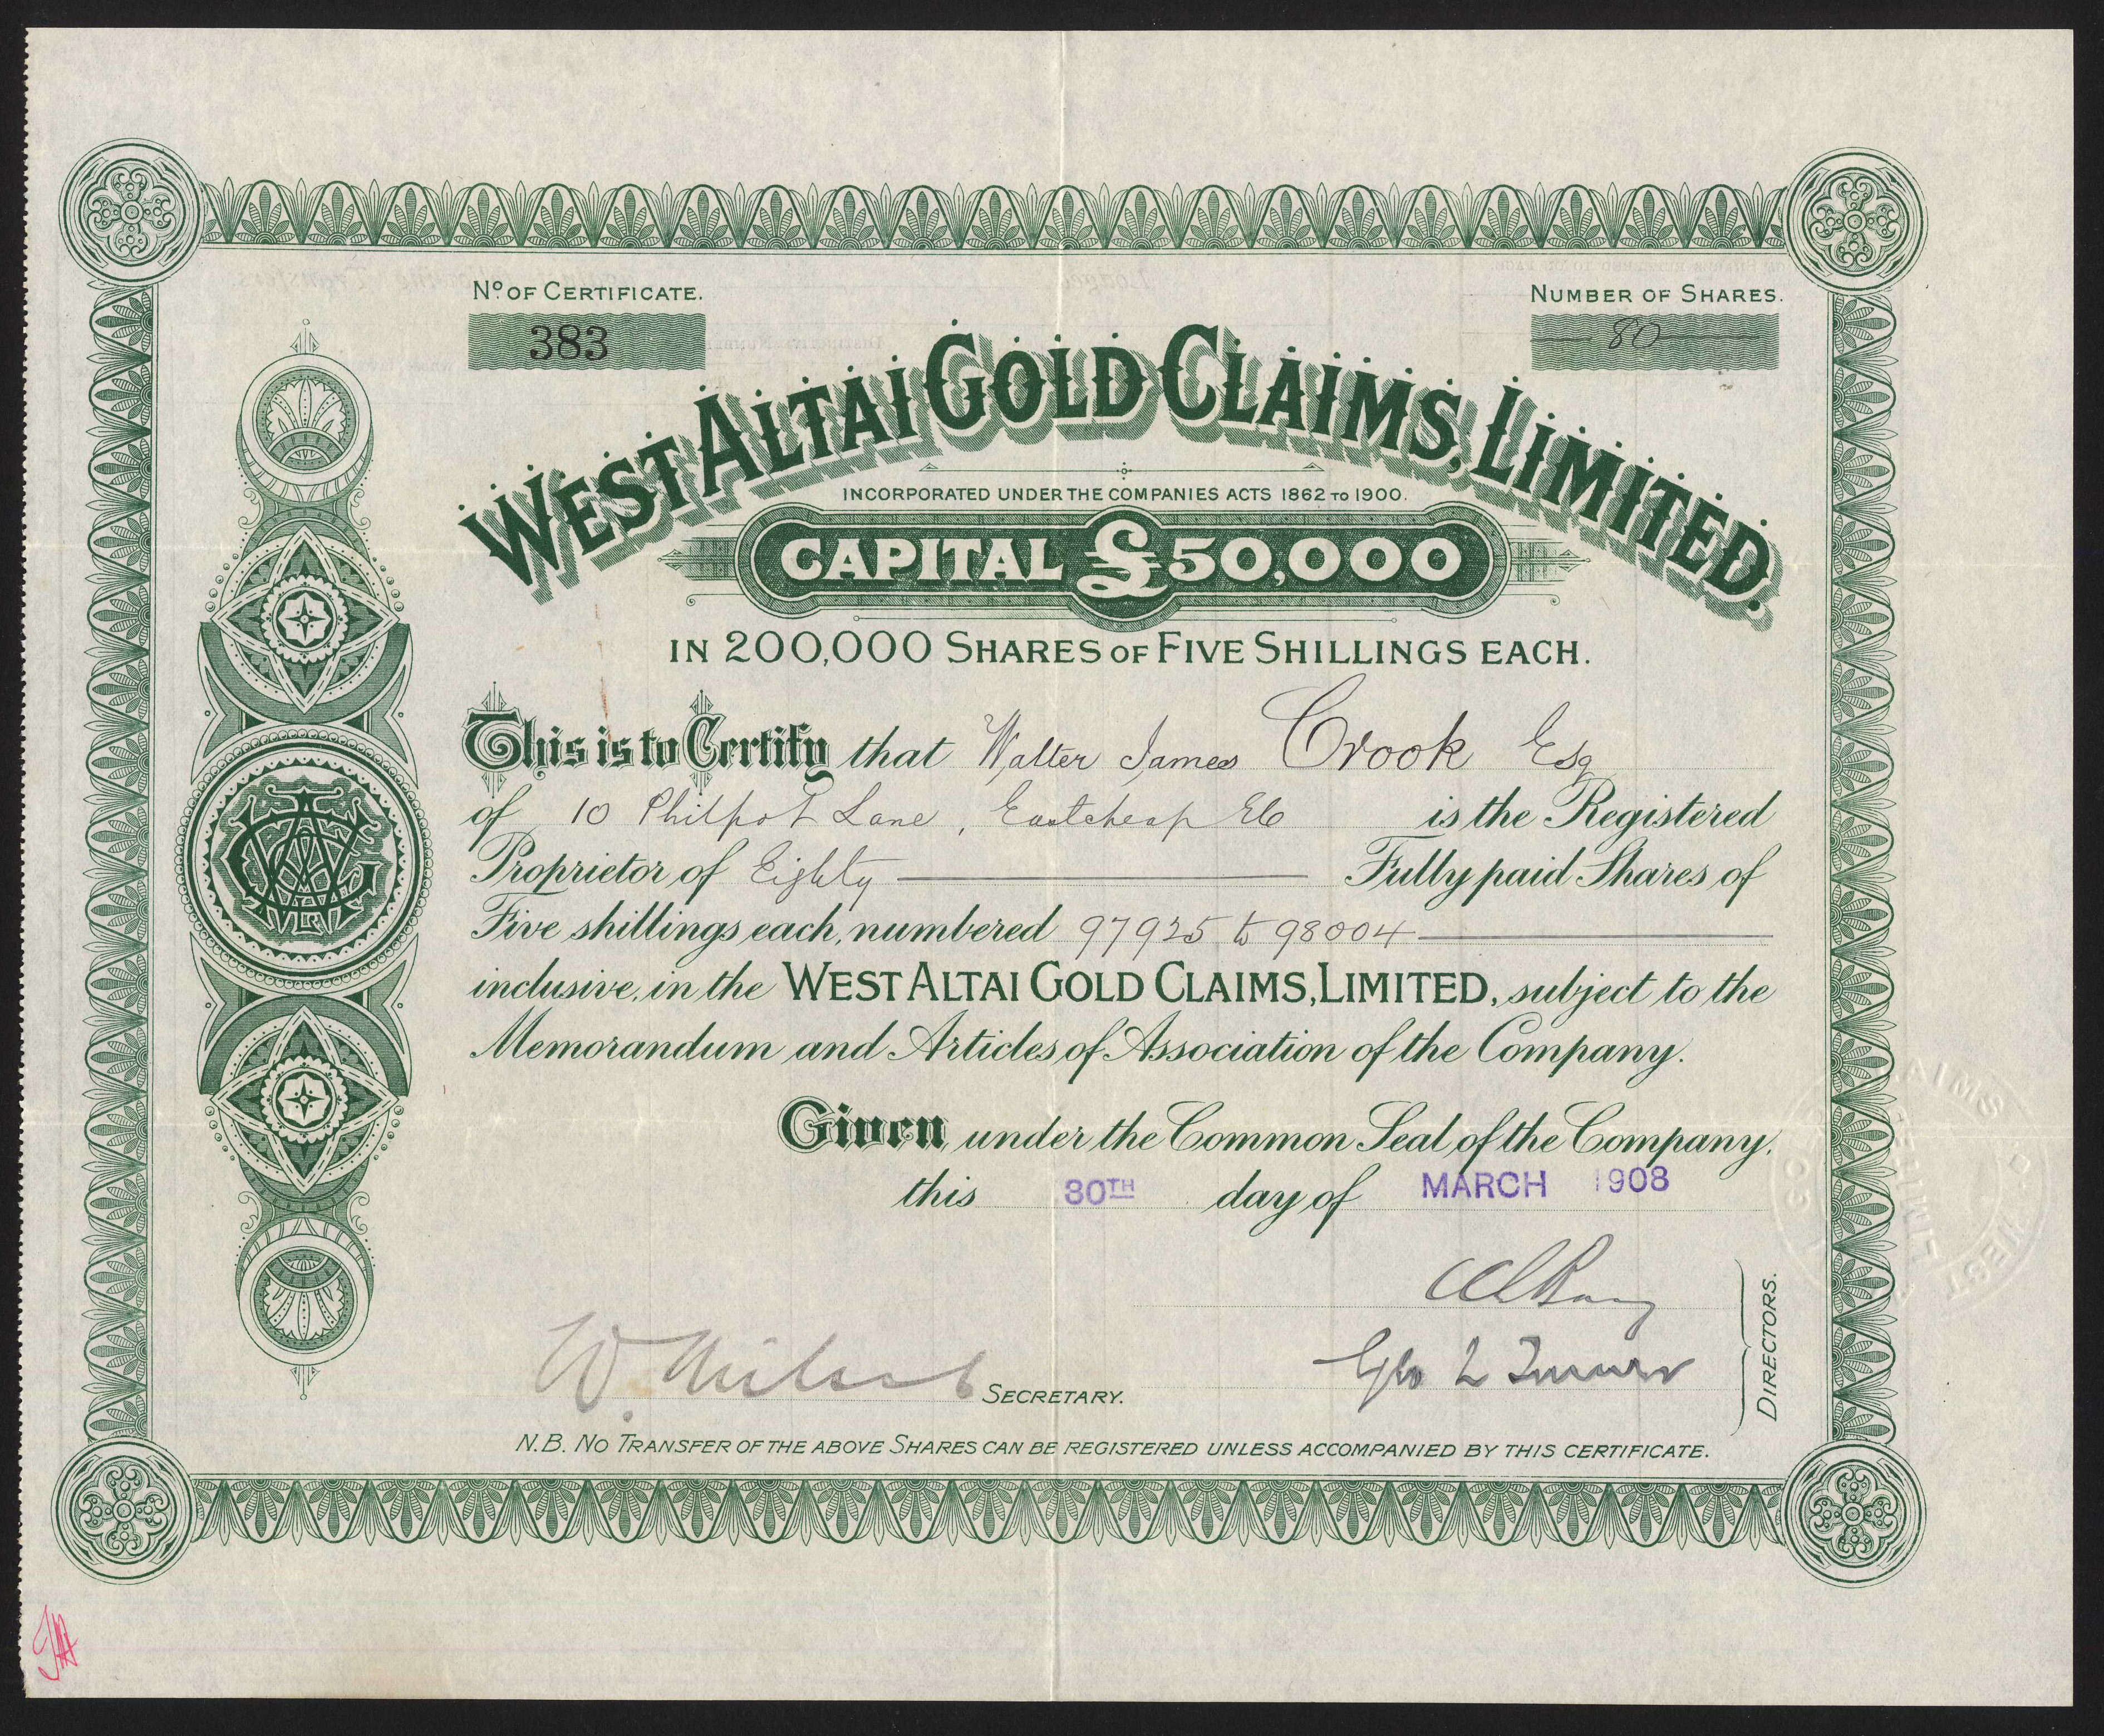 Nº OF CERTIFICATE.
383
NUMBER OF SHARES.
80
WEST ALTAI GOLD CLAIMS, LIMITED.
INCORPORATED UNDER THE COMPANIES ACTS 1862 TO 1900.
CAPITAL £50,000
IN 200,000 SHARES OF FIVE SHILLINGS EACH.
This is to Certify that Walter James Crook Esq
of 10 Philpot Lane, Eastcheap EC is the Registered
Proprietor of Eighty Fully paid Shares of
Five shillings each, numbered 97925 to 98004
inclusive, in the WEST ALTAI GOLD CLAIMS, LIMITED, subject to the
Memorandum and Articles of Association of the Company.
Given under the Common Seal of the Company,
this 30TH day of MARCH 1908
Geo L Turner
DIRECTORS.
W. SECRETARY.
N.B. NO TRANSFER OF THE ABOVE SHARES CAN BE REGISTERED UNLESS ACCOMPANIED BY THIS CERTIFICATE.